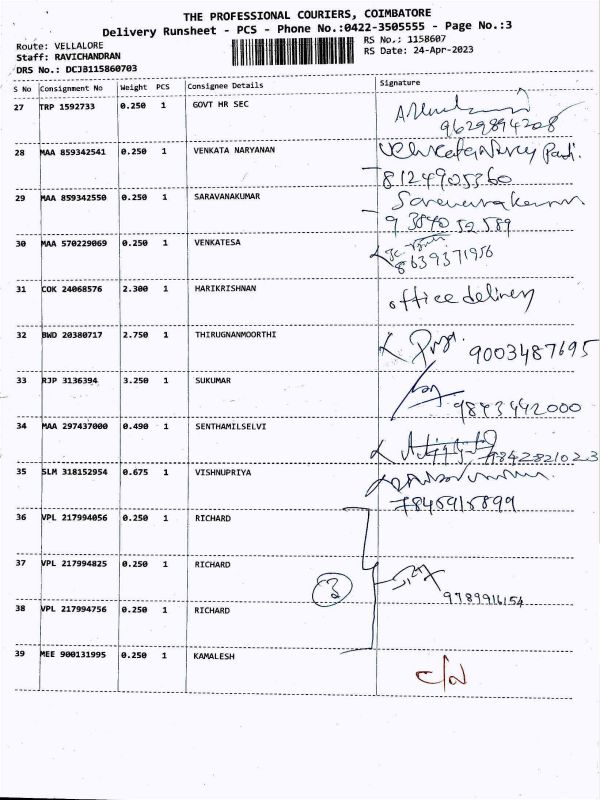 THE PROFESSIONAL COURIERS, COIMBATORE
Delivery Runsheet - PCS - Phone No.:0422-3505555 - Page No.:3
Route: VELLALORE
RS No.: 1158607
Staff: RAVICHANDRAN
RS Date: 24-Apr-2023
DRS No.: DCJB115860703
S No Consignment No Weight PCS Consignee Details Signature
27 TRP 1592733 0.250 1 GOVT HR SEC
9629894208
28 MAA 859342541 0.250 1 VENKATA NARYANAN
8124905360
29 MAA 859342550 0.250 1 SARAVANAKUMAR
9384052589
30 MAA 570229069 0.250 1 VENKATESA
8639371956
31 COK 24068576 2.300 1 HARIKRISHNAN office delivery
32 BWD 20380717 2.750 1 THIRUGNANMOORTHI
9003487695
33 RJP 3136394 3.250 1 SUKUMAR
9843442000
34 MAA 297437000 0.490 1 SENTHAMILSELVI
9842821023
35 SLM 318152954 0.675 1 VISHNUPRIYA
7845915899
36 VPL 217994056 0.250 1 RICHARD
37 VPL 217994825 0.250 1 RICHARD
3
9789916154
38 VPL 217994756 0.250 1 RICHARD
39 MEE 900131995 0.250 1 KAMALESH